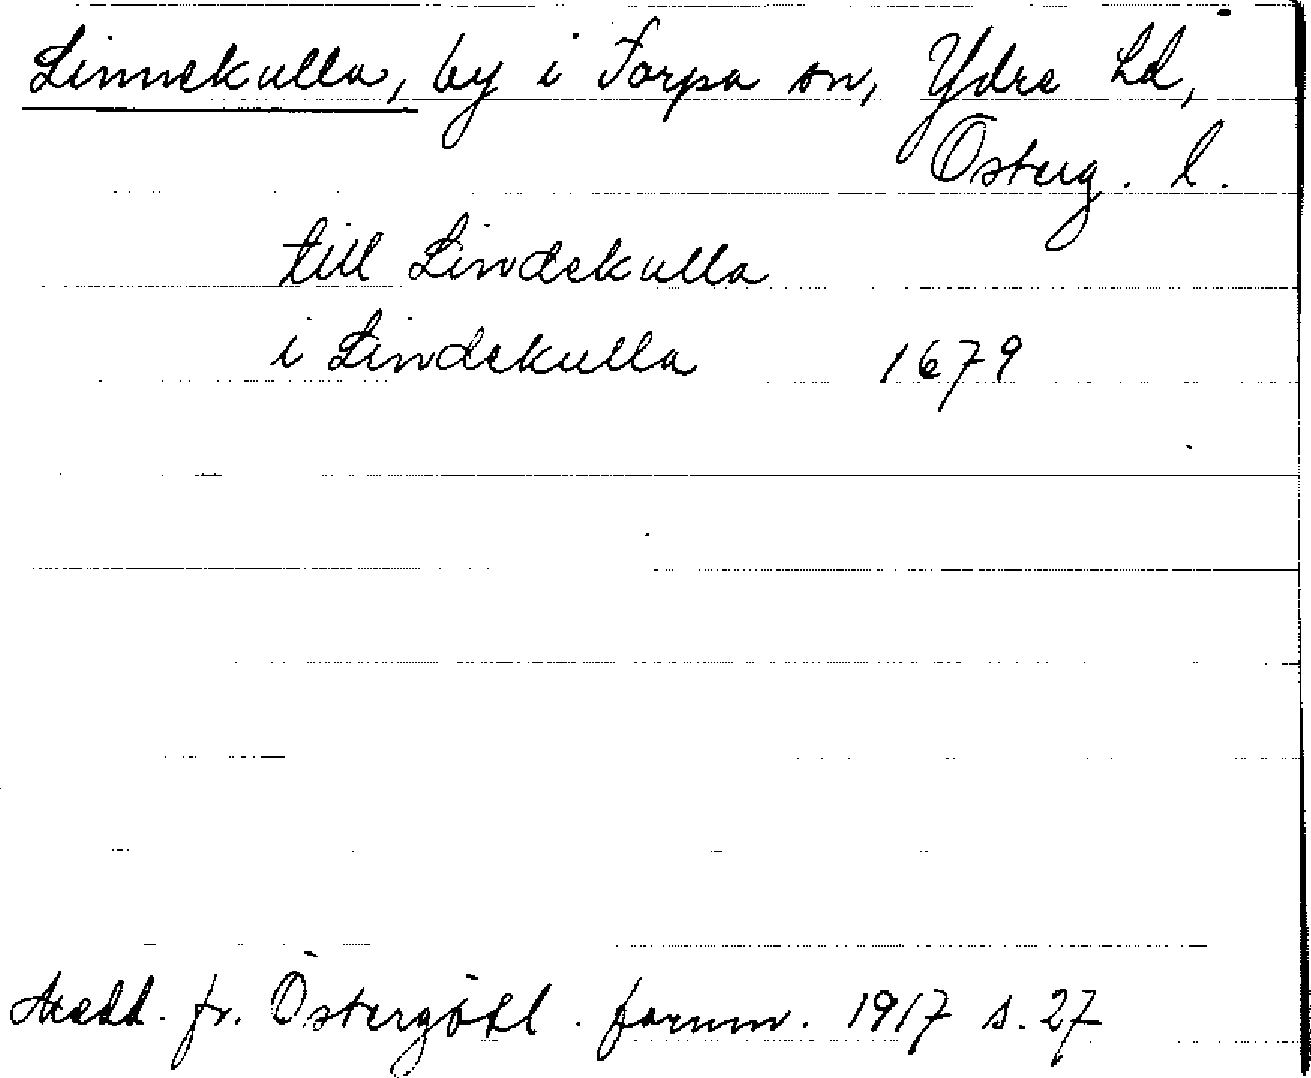 Linnekulla, by i Torpa sn, Ydre hd,
Österg. l.
till Lindekulla
i Lindekulla 1679
Medd. fr. Östergötl. fornm. 1917 s. 27